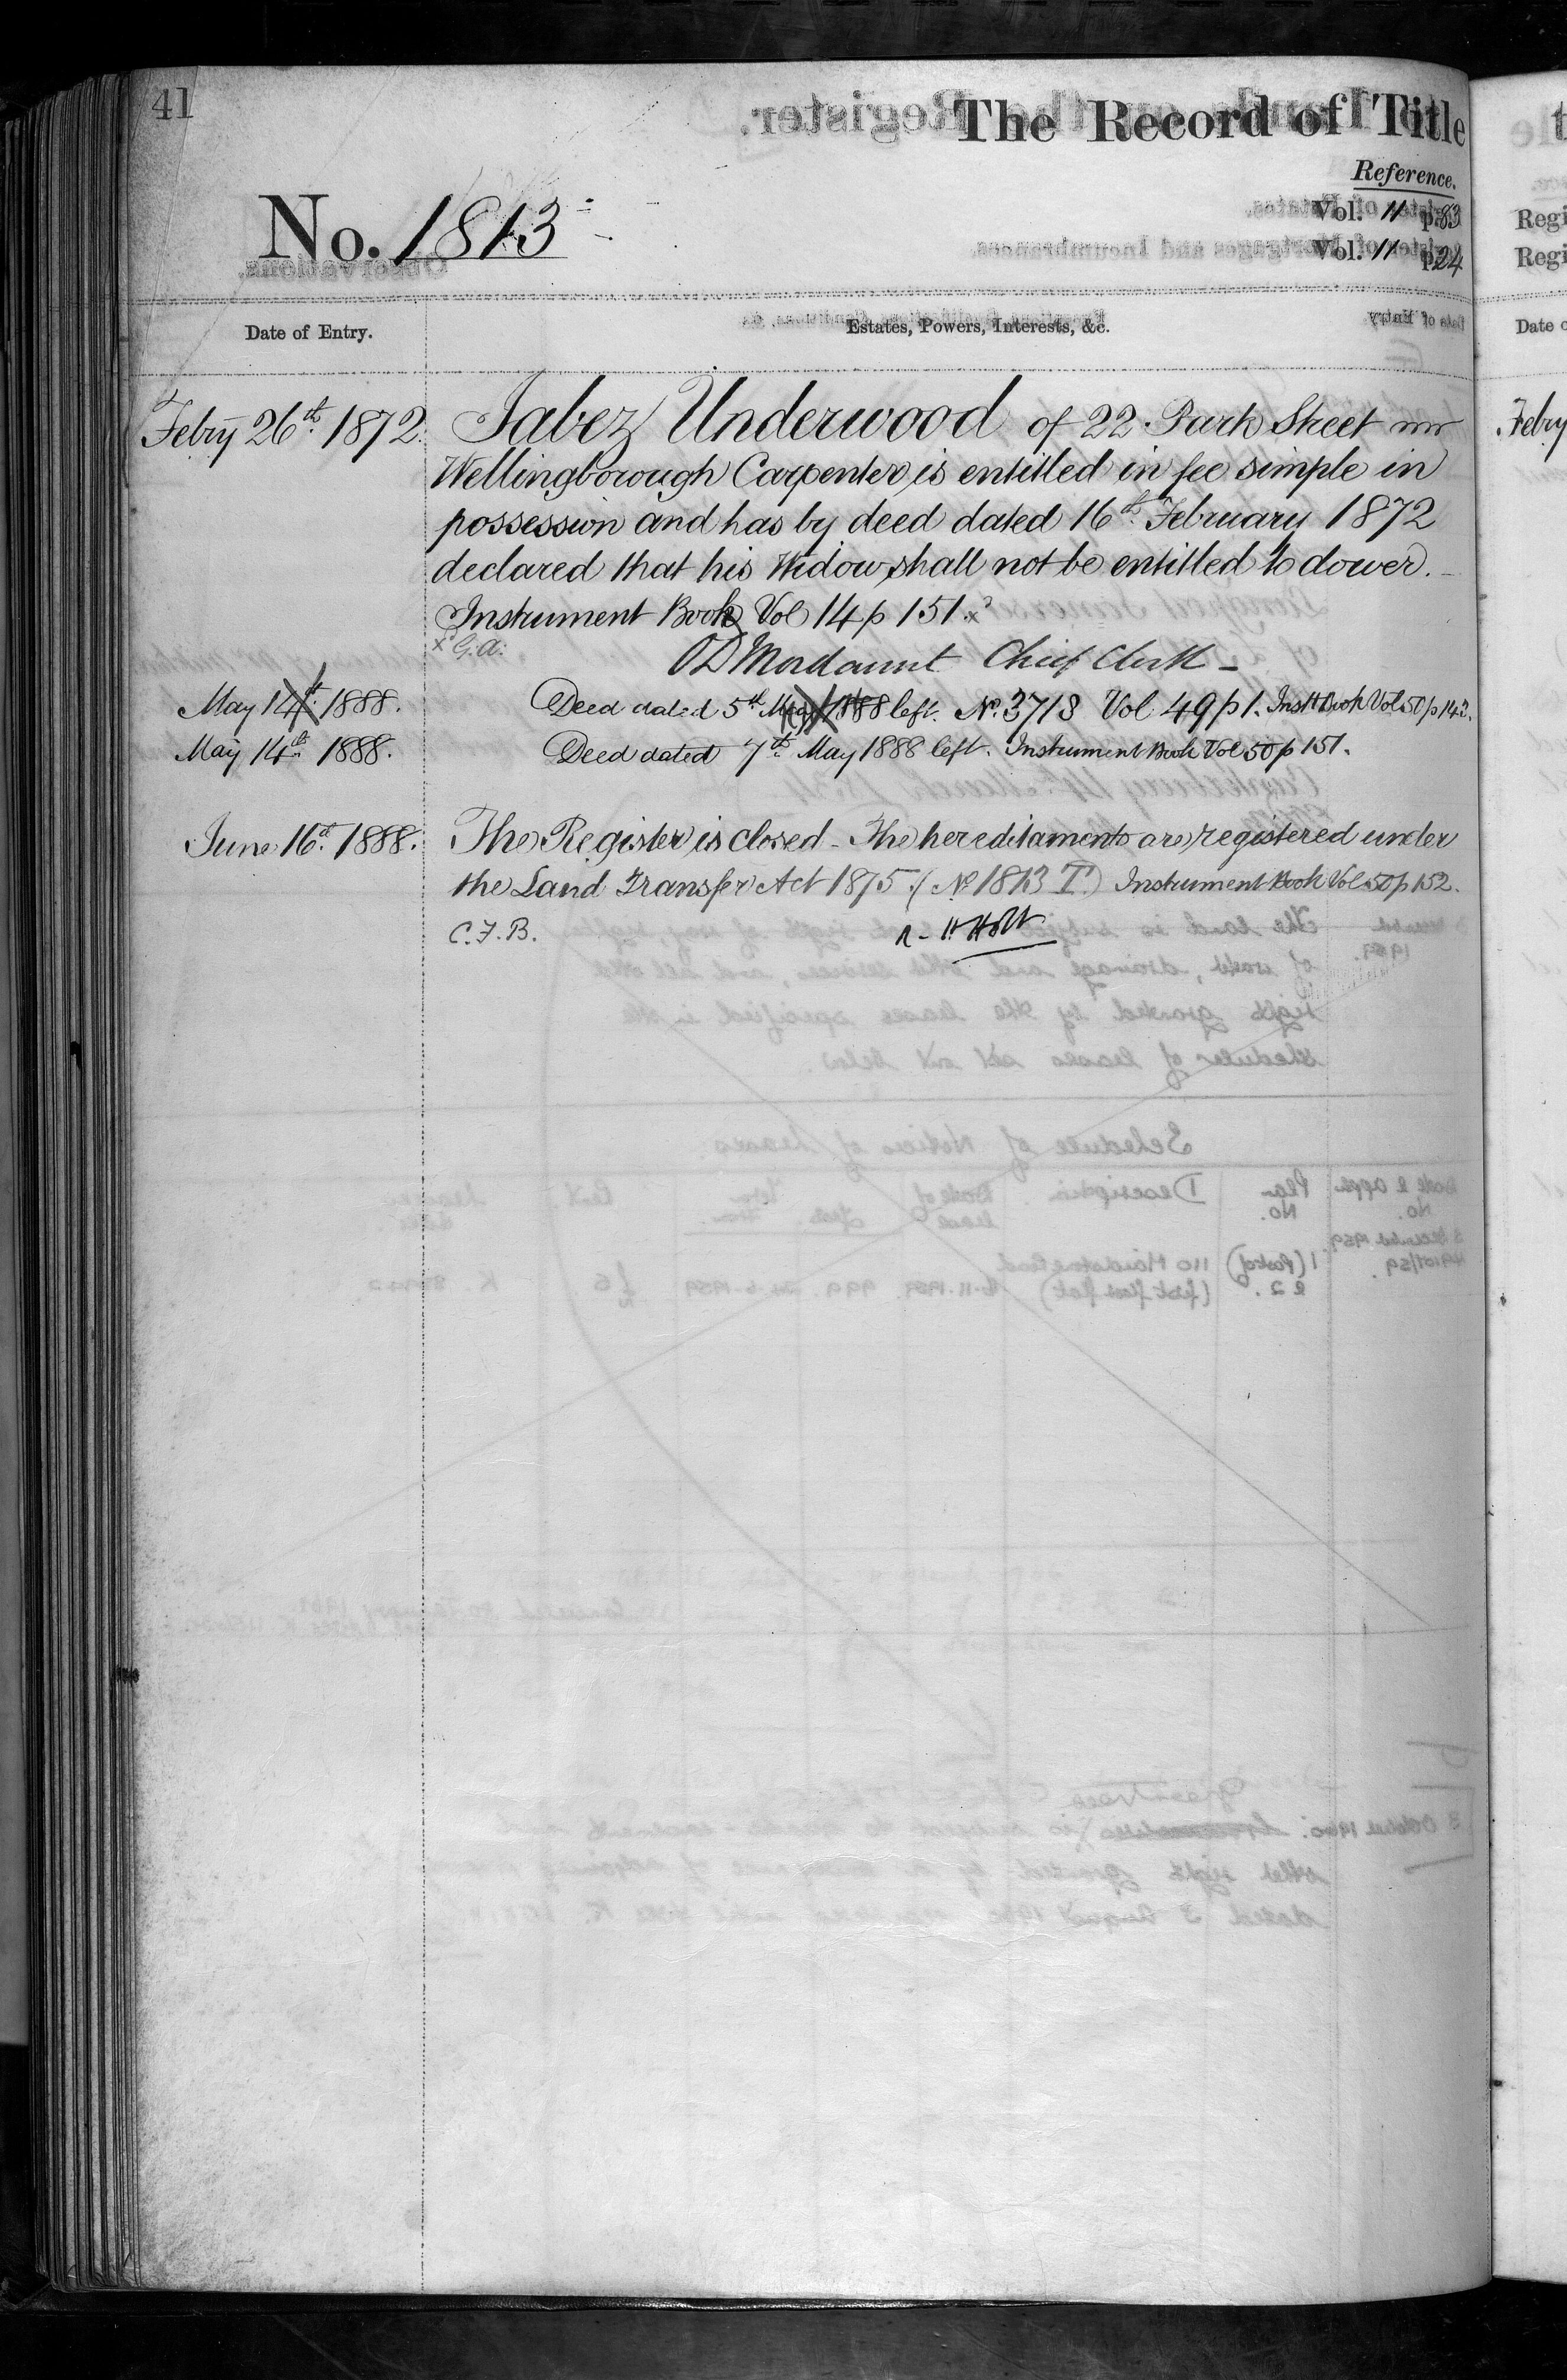 41
The Record of Title
Reference.
No. 1813
Vol. 11 p. 83
Vol. 11 p. 24
Date of Entry.
Estates, Powers, Interests, &c.
Febry 26th. 1872. Jabez Underwood of 22 Park Street
Wellingborough Carpenter is entitled in fee simple in
possession and has by deed dated 16th. February 1872
declared that his Widow shall not be entitled to dower.
Instrument Book Vol 14 p 151. x
x G.A.
Mordaunt Chief Clerk
May 14th. 1888. Deed dated 5th May 1888 left. No. 3718 Vol 49 p 1. Inst Book Vol 50 p 142.
May 14th. 1888. Deed dated 7th. May 1888 left. Instrument Book Vol 50 p 151.
June 16th. 1888. The Register is closed - The hereditaments are registered under
the Land Transfer Act 1875. (No 1813 T.) Instrument Book Vol 50 p 152.
C.F.B. Holt
Regi
Regi
Date o
Febry